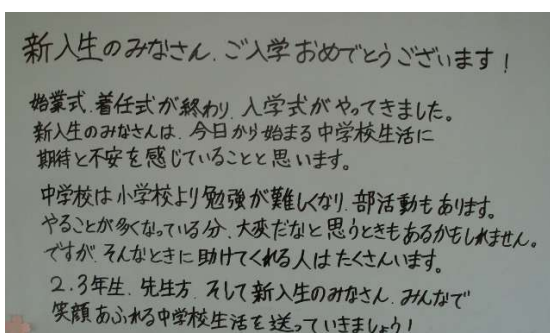 新入生のみなさん、ご入学おめでとうございます！
始業式、着任式が終わり、入学式がやってきました。
新入生のみなさんは、今日から始まる中学校生活に
期待と不安を感じていることと思います。
中学校は小学校より勉強が難しくなり、部活動もあります。
やることが多くなっている分、大変だなと思うときもあるかもしれません。
ですが、そんなときに助けてくれる人はたくさんいます。
2、3年生、先生方、そして新入生のみなさん、みんなで
笑顔あふれる中学校生活を送っていきましょう！